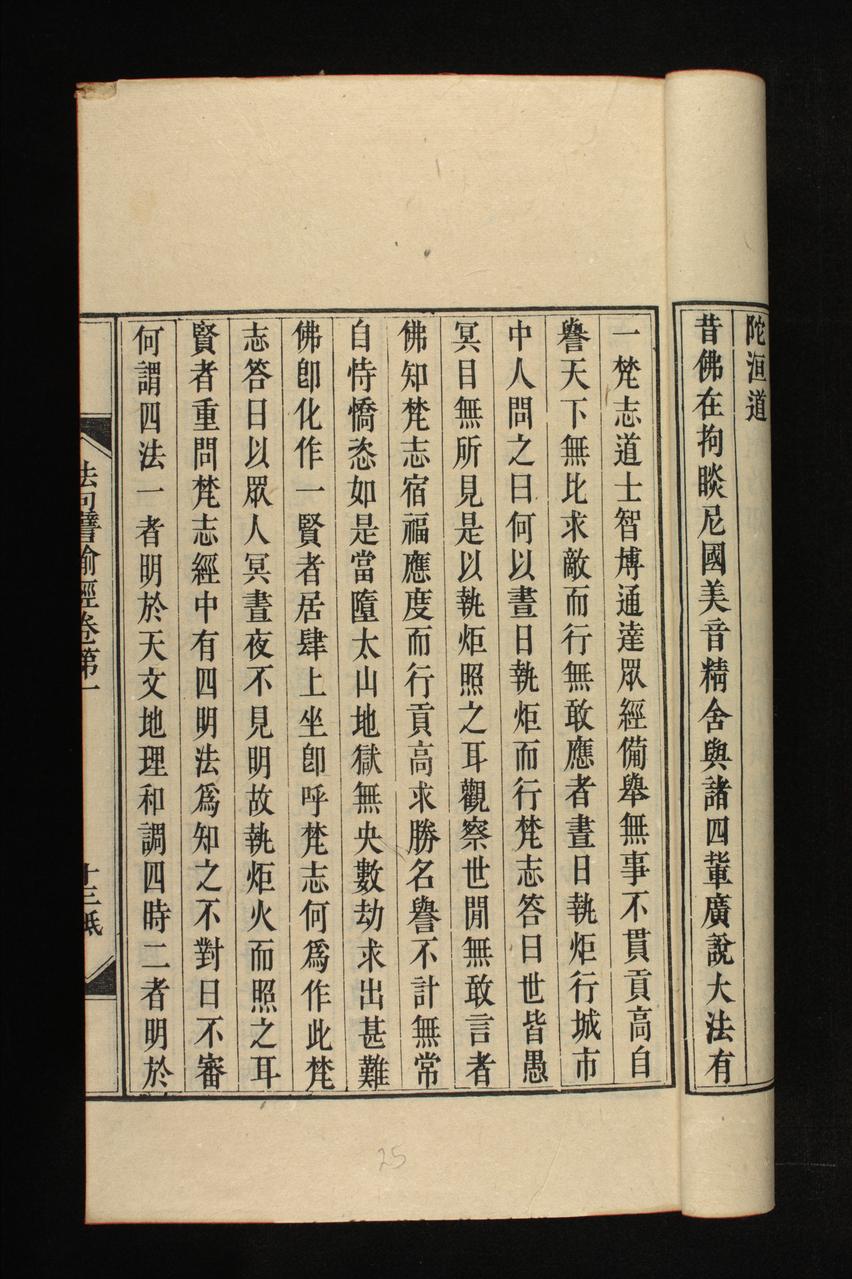 陀洹道
昔佛在拘睒尼國美音精舍與諸四輩廣說大法有
一梵志道士智博通達眾經備舉無事不貫貢高自
譽天下無比求敵而行無敢應者晝日執炬行城市
中人問之曰何以晝日執炬而行梵志答曰世皆愚
冥目無所見是以執炬照之耳觀察世閒無敢言者
佛知梵志宿福應度而行貢高求勝名譽不計無常
自恃憍恣如是當墮太山地獄無央數劫求出甚難
佛卽化作一賢者居肆上坐卽呼梵志何爲作此梵
志答曰以眾人冥晝夜不見明故執炬火而照之耳
賢者重問梵志經中有四明法爲知之不對曰不審
何謂四法一者明於天文地理和調四時二者明於
法句譬喻經卷第一
十三紙
25